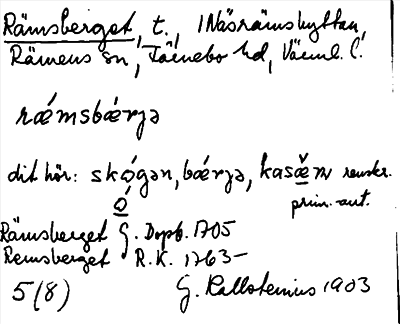 Rämsberget, t., i Näsrämshyttan,
Rämens sn, Färnebo hd, Värml. l.
rǽmsbǽrjə
dit hör: skógən, bǽrjə, kasǽn renskr.
ó prim.-ant.
Rämsberget G. Dopb. 1705
Remsberget R.K. 1763–
5(8) G. Kallstenius 1903